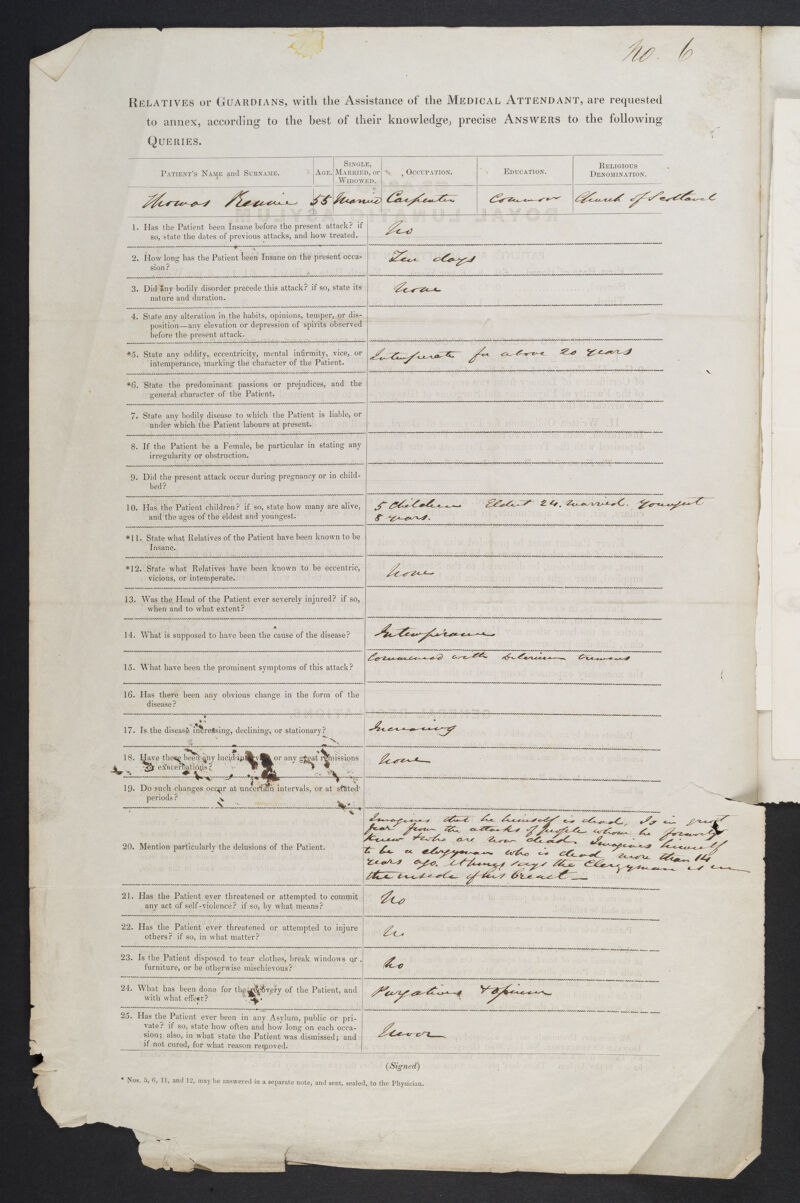 No. 6
RELATIVES or GUARDIANS, with the Assistance of the MEDICAL ATTENDANT, are requested
to annex, according to the best of their knowledge, precise ANSWERS to the following
QUERIES.
PATIENT'S NAME and SURNAME.
AGE.
SINGLE,
MARRIED, or
WIDOWED.
OCCUPATION.
EDUCATION.
RELIGIOUS
DENOMINATION.
Thomas Rennie
55
Married
Carpenter
Common
Church of Scotland
1. Has the Patient been Insane before the present attack? if
so, state the dates of previous attacks, and how treated.
No
2. How long has the Patient been Insane on the present occa-
sion?
Ten days
3. Did any bodily disorder precede this attack? if so, state its
nature and duration.
None
4. State any alteration in the habits, opinions, temper, or dis-
position—any elevation or depression of spirits observed
before the present attack.
*5. State any oddity, eccentricity, mental infirmity, vice, or
intemperance, marking the character of the Patient.
Intemperate for above 20 years
*6. State the predominant passions or prejudices, and the
general character of the Patient.
7. State any bodily disease to which the Patient is liable, or
under which the Patient labours at present.
8. If the Patient be a Female, be particular in stating any
irregularity or obstruction.
9. Did the present attack occur during pregnancy or in child-
bed?
10. Has the Patient children? if so, state how many are alive,
and the ages of the eldest and youngest.
5 Children Eldest 24. married. Youngest
8 years.
*11. State what Relatives of the Patient have been known to be
Insane.
*12. State what Relatives have been known to be eccentric,
vicious, or intemperate.
None
13. Was the Head of the Patient ever severely injured? if so,
when and to what extent?
14. What is supposed to have been the cause of the disease?
Intemperance
15. What have been the prominent symptoms of this attack?
Commenced with Delirium tremens
16. Has there been any obvious change in the form of the
disease?
17. Is the disease increasing, declining, or stationary?
Increasing
18. Have there been any lucid intervals, or any great remissions
or exacerbations?
None
19. Do such changes occur at uncertain intervals, or at stated
periods?
20. Mention particularly the delusions of the Patient.
Imagines that he himself is dead, Is in great
fear from the attacks of people whom he formerly
knew & who are now dead. Imagines himself
to be a clergyman who is dead more than 14
years ago. At times says the Clergyman is in
the inside of his breast —
21. Has the Patient ever threatened or attempted to commit
any act of self-violence? if so, by what means?
No
22. Has the Patient ever threatened or attempted to injure
others? if so, in what matter?
No
23. Is the Patient disposed to tear clothes, break windows or
furniture, or be otherwise mischievous?
No
24. What has been done for the recovery of the Patient, and
with what effect?
Purgatives & opium
25. Has the Patient ever been in any Asylum, public or pri-
vate? if so, state how often and how long on each occa-
sion; also, in what state the Patient was dismissed; and
if not cured, for what reason removed.
Never
(Signed)
* Nos. 5, 6, 11, and 12, may be answered in a separate note, and sent, sealed, to the Physician.